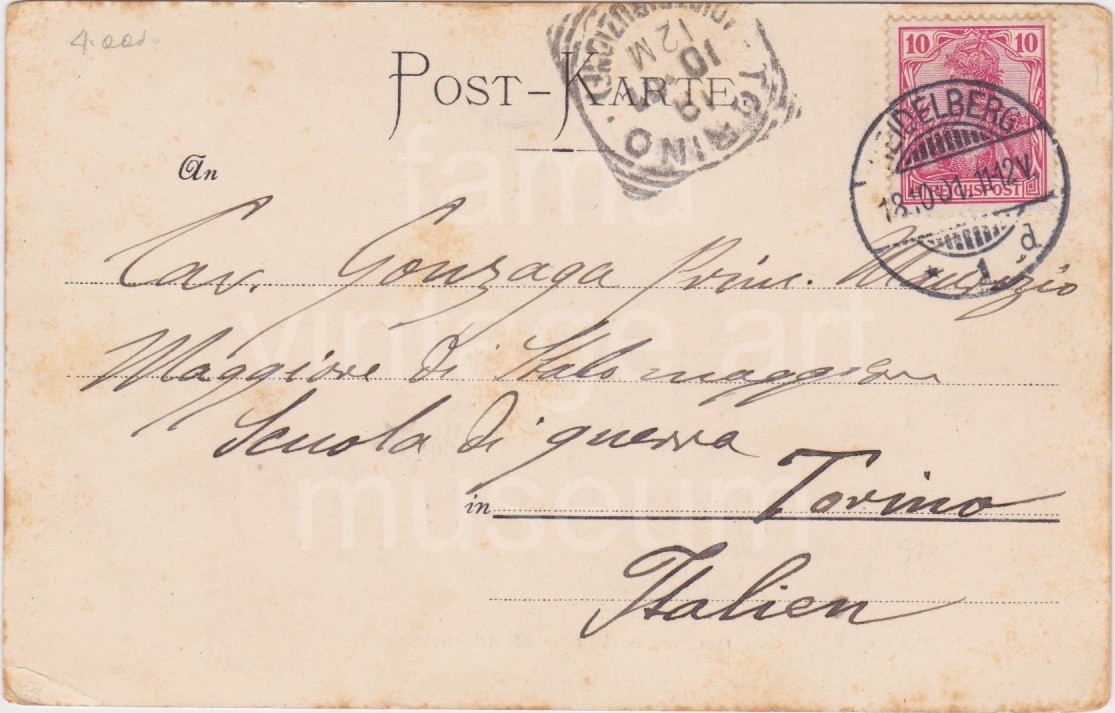 4.000.
POST-KARTE
10 10
REICHSPOST
HEIDELBERG
18.10.01.11-12V.
* 1 d
TORINO
10
12 M
An
Cav. Gonzaga Prin. Maurizio
Maggiore di Stato maggiore
Scuola di guerra
in Torino
Italien
fama
vintage art
museum